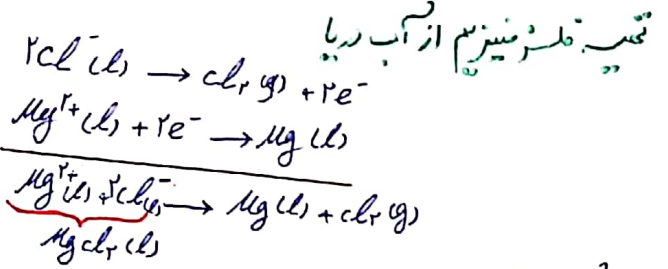 تهیه فلز منیزیم از آب دریا
۲Cl⁻(l) → Cl₂(g) + ۲e⁻
Mg²⁺(l) + ۲e⁻ → Mg(l)
Mg²⁺(l) + ۲Cl⁻(l) → Mg(l) + Cl₂(g)
MgCl₂(l)